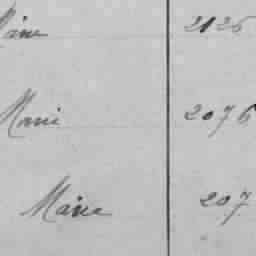 Maine 2125
Marie 2076
Maire 207